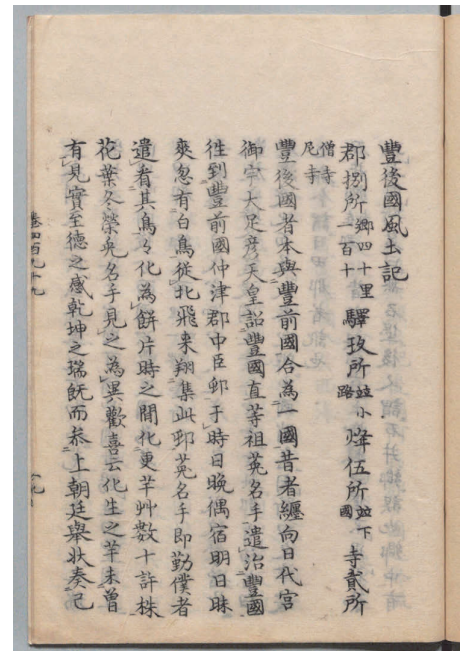 豐後國風土記
郡捌所 郷四十里一百十 驛玖所 並小路 烽伍所 並下國 寺貳所
僧寺尼寺
豐後國者本與豐前國合為一國昔者纏向日代宮
御宇大足彦天皇詔豐國直等祖菟名手遣治豐國
徃到豐前國仲津郡中臣邨于時日晩偶宿明日昧
爽忽有白鳥從北飛来翔集此邨菟名手即勤僕者
遣看其鳥々化為餅片時之間化更芋艸數十許株
花葉冬榮菟名手見之為異歡喜云化生之芋未曽
有見實至德之感乾坤之瑞既而叅上朝廷舉状奏已
巻四百九十九